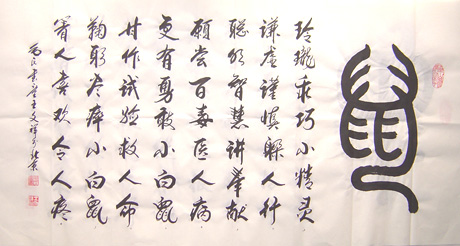 鼠
玲瓏乖巧小精灵
谦虚谨慎躲人行
聪明智慧讲奉献
愿尝百毒医人病
更有勇敢小白鼠
甘作试验救人命
鞠躬尽瘁小白鼠
人喜欢令人疼
王文祥于北京